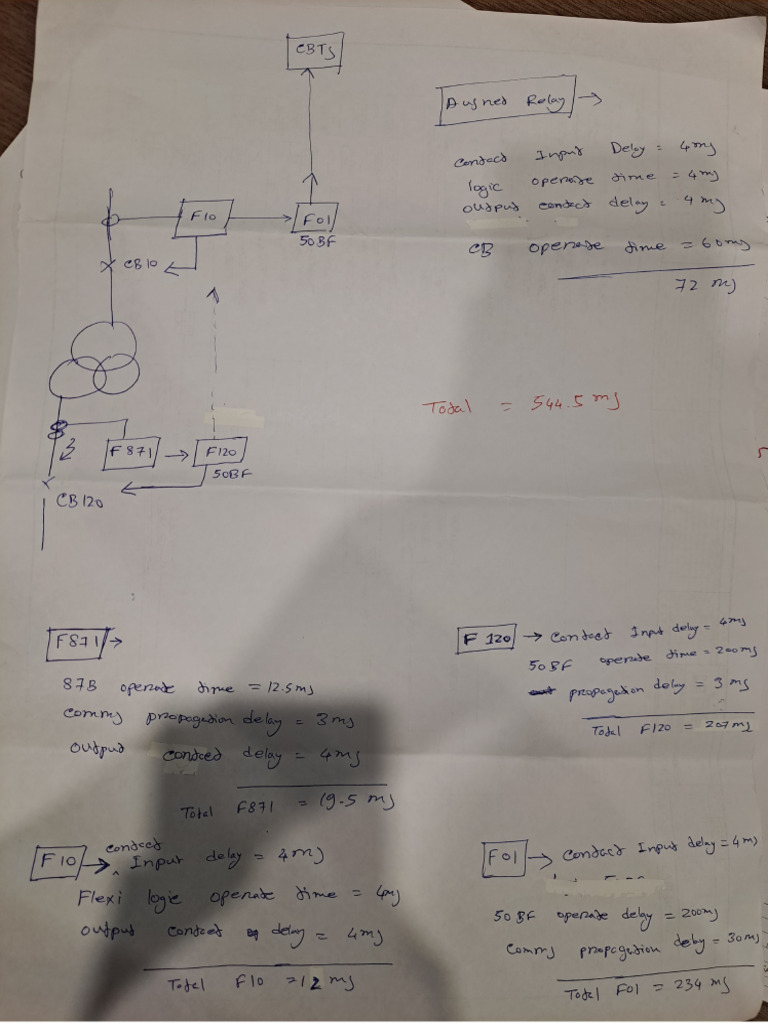 CBTS
Ausnet Relay →
contact Input Delay = 4ms
logic operate time = 4ms
output contact delay = 4 ms
CB operate time = 60ms
72 ms
F10
F01
50BF
CB10
Total = 544.5 ms
F871
F120
50BF
CB120
F871 →
87B operate time = 12.5ms
Comms propagation delay = 3ms
output contact delay = 4ms
Total F871 = 19.5 ms
F 120 → Contact Input delay = 4ms
50BF operate time = 200ms
propagation delay = 3 ms
Total F120 = 207ms
F10 → contact Input delay = 4ms
Flexi logic operate time = 4ms
output contact delay = 4ms
Total F10 = 12 ms
F01 → Contact Input delay = 4ms
50BF operate delay = 200ms
Comms propagation delay = 30ms
Total F01 = 234 ms